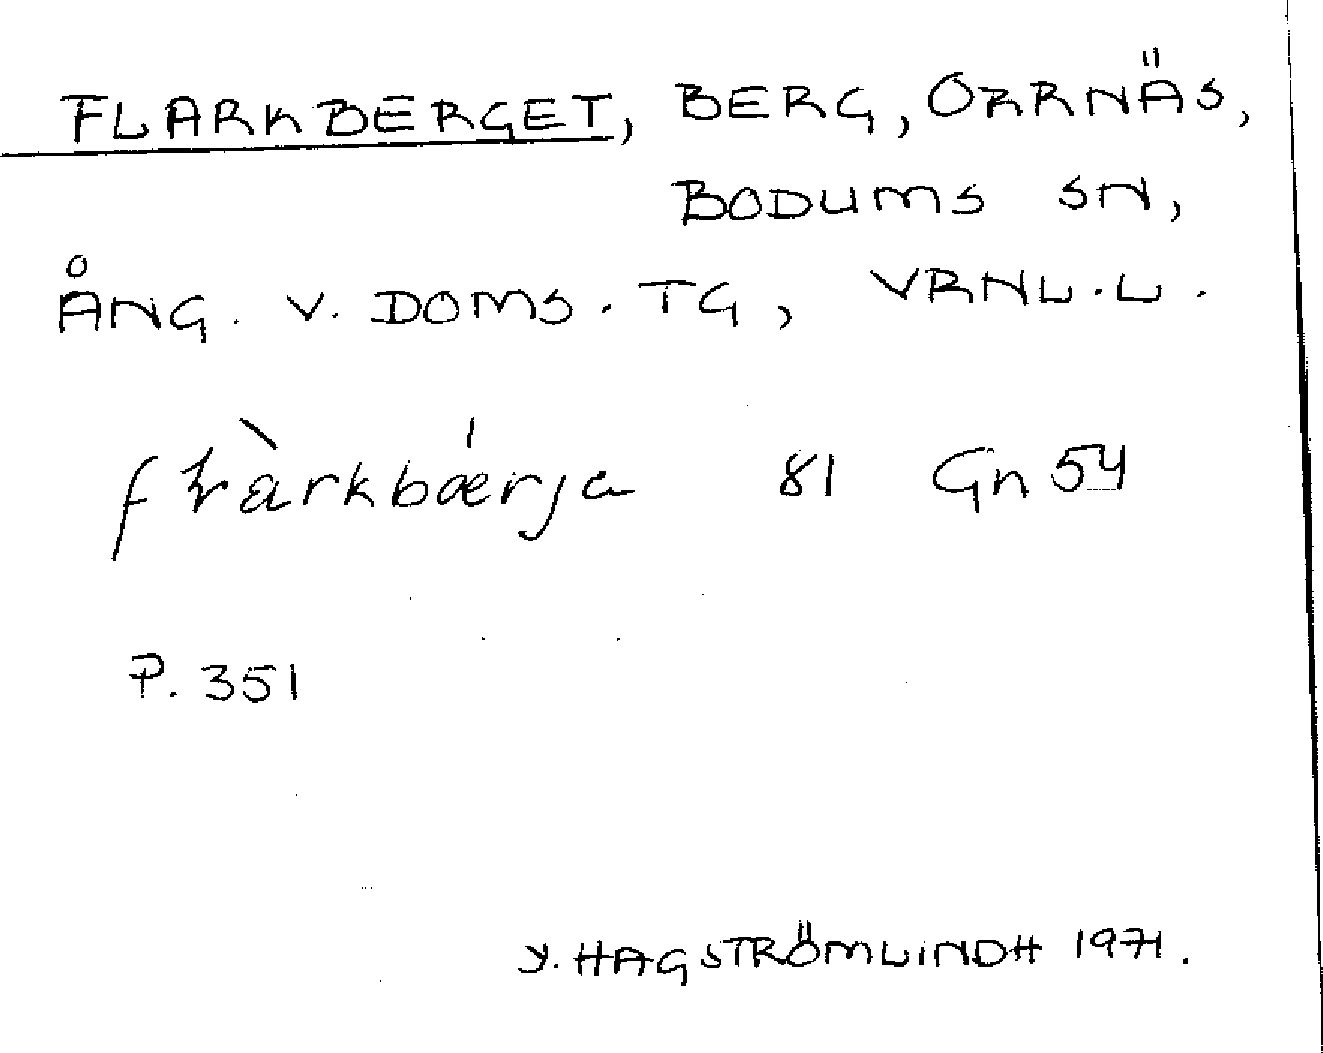 FLARKBERGET, BERG, ORRNÄS,
BODUMS SN,
ÅNG. V. DOMS. TG, VRNL.L.
81 Gn 54
P. 351
Y. HAGSTRÖMLINDH 1971.